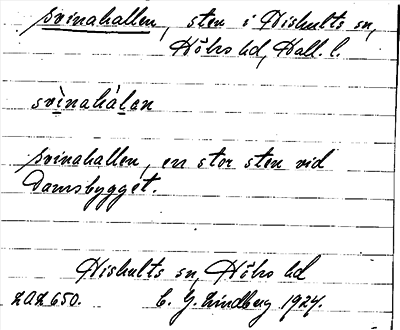 svinahallen, sten i Hishults sn,
Höks hd, Hall. l.
svìnahálan
svinahallen, en stor sten vid
Damsbygget.
Hishults sn, Höks hd
ZAZ650. C. G. Lindberg 1924.